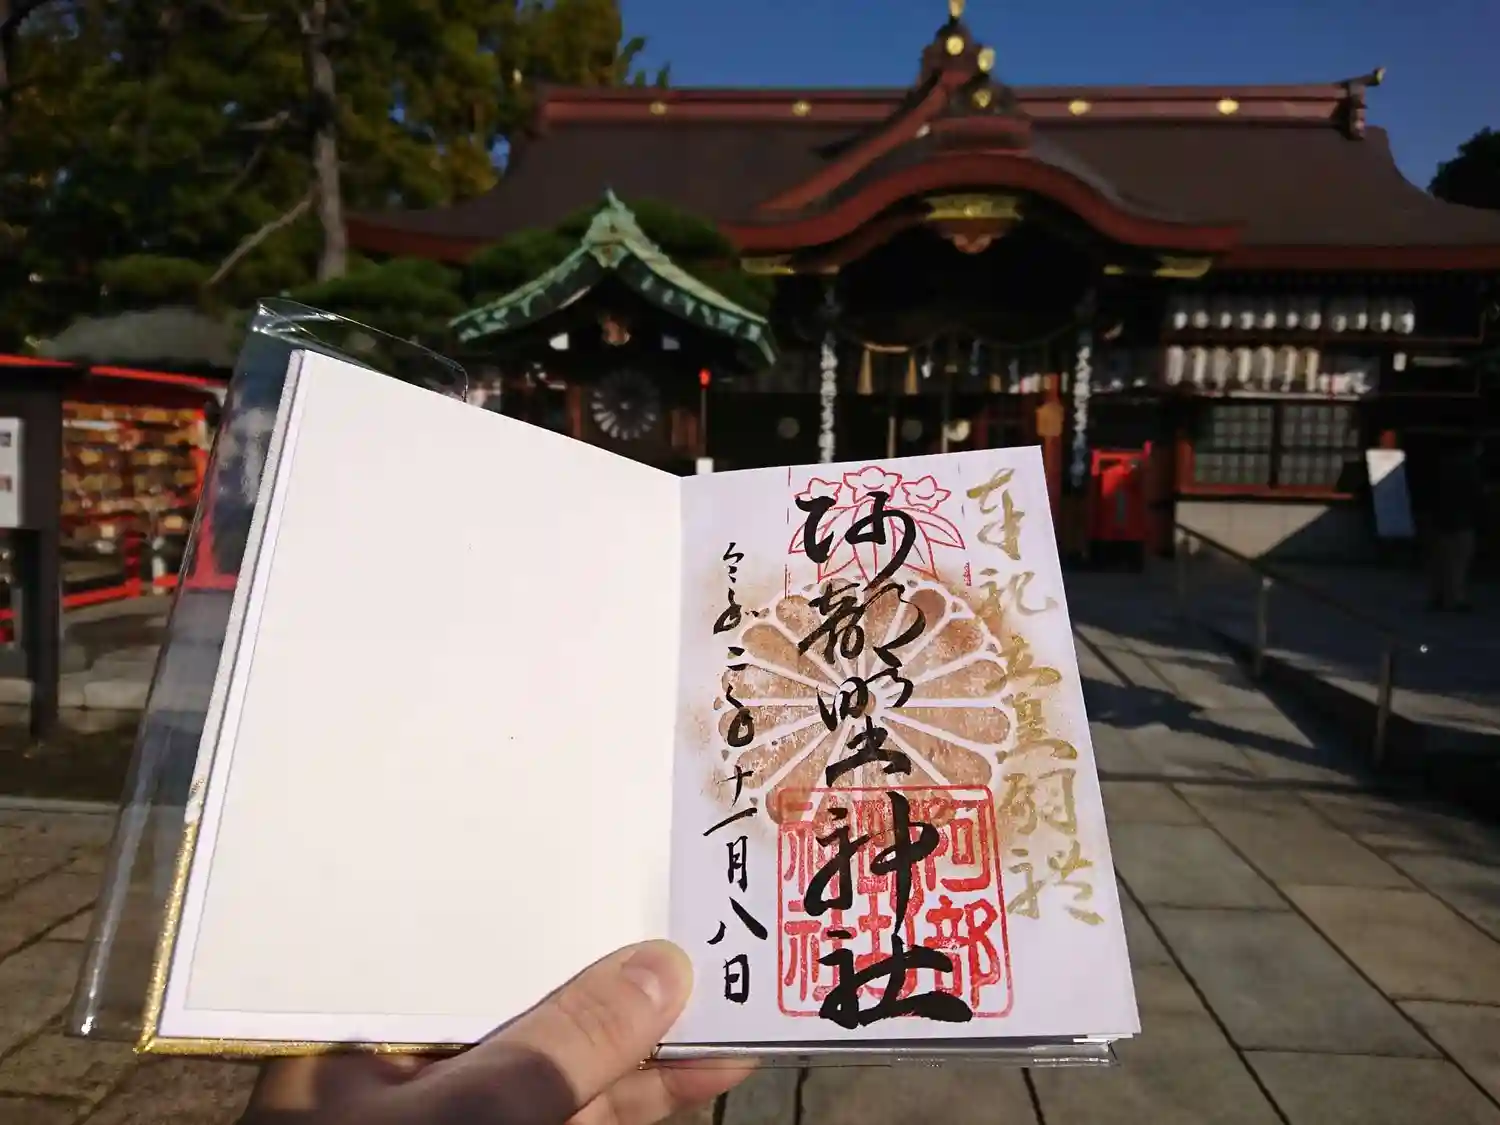 奉祝 立皇嗣禮
阿部野神社
令和二年十一月八日
阿部
野神
社